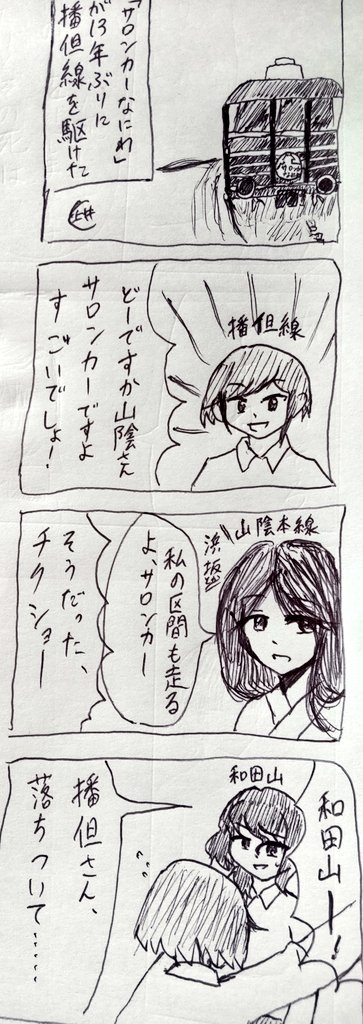 「サロンカーなにわ」
が13年ぶりに
播但線を駆けた
播但線
どーですか山陰さん
サロンカーですよ
すごいでしょ!
山陰本線
浜坂
私の区間も走る
よ、サロンカー
そうだった、
チクショー
和田山ー!
和田山
播但さん、
落ちついて……